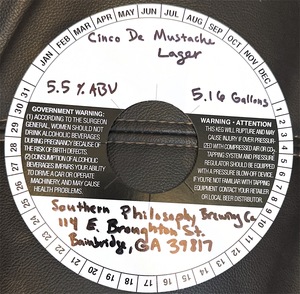 JAN FEB MAR APR MAY JUN JUL AUG SEP OCT NOV DEC
Cinco De Mustache
Lager
5.5 % ABV
5.16 Gallons
GOVERNMENT WARNING:
(1) ACCORDING TO THE SURGEON
GENERAL, WOMEN SHOULD NOT
DRINK ALCOHOLIC BEVERAGES
DURING PREGNANCY BECAUSE OF
THE RISK OF BIRTH DEFECTS.
(2) CONSUMPTION OF ALCOHOLIC
BEVERAGES IMPAIRS YOUR ABILITY
TO DRIVE A CAR OR OPERATE
MACHINERY, AND MAY CAUSE
HEALTH PROBLEMS.
WARNING • ATTENTION
THIS KEG WILL RUPTURE AND MAY
CAUSE INJURY IF OVER PRESSUR-
IZED WITH COMPRESSED AIR OR CO2.
TAPPING SYSTEM AND PRESSURE
REGULATOR SHOULD BE EQUIPPED
WITH A PRESSURE BLOW-OFF DEVICE.
IF YOU'RE NOT FAMILIAR WITH TAPPING
EQUIPMENT CONTACT YOUR RETAILER
OR LOCAL BEER DISTRIBUTOR.
Southern Philosophy Brewing Co
114 E. Broughton St.
Bainbridge, GA 39817
1 2 3 4 5 6 7 8 9 10 11 12 13 14 15 16 17 18 19 20 21 22 23 24 25 26 27 28 29 30 31